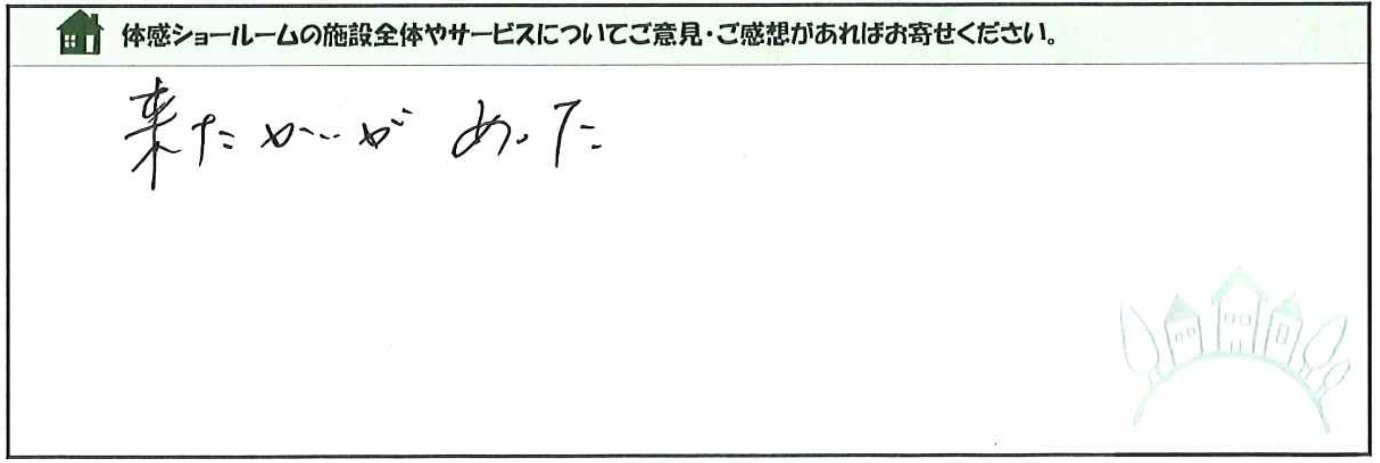 体感ショールームの施設全体やサービスについてご意見・ご感想があればお寄せください。
来たかいが あった